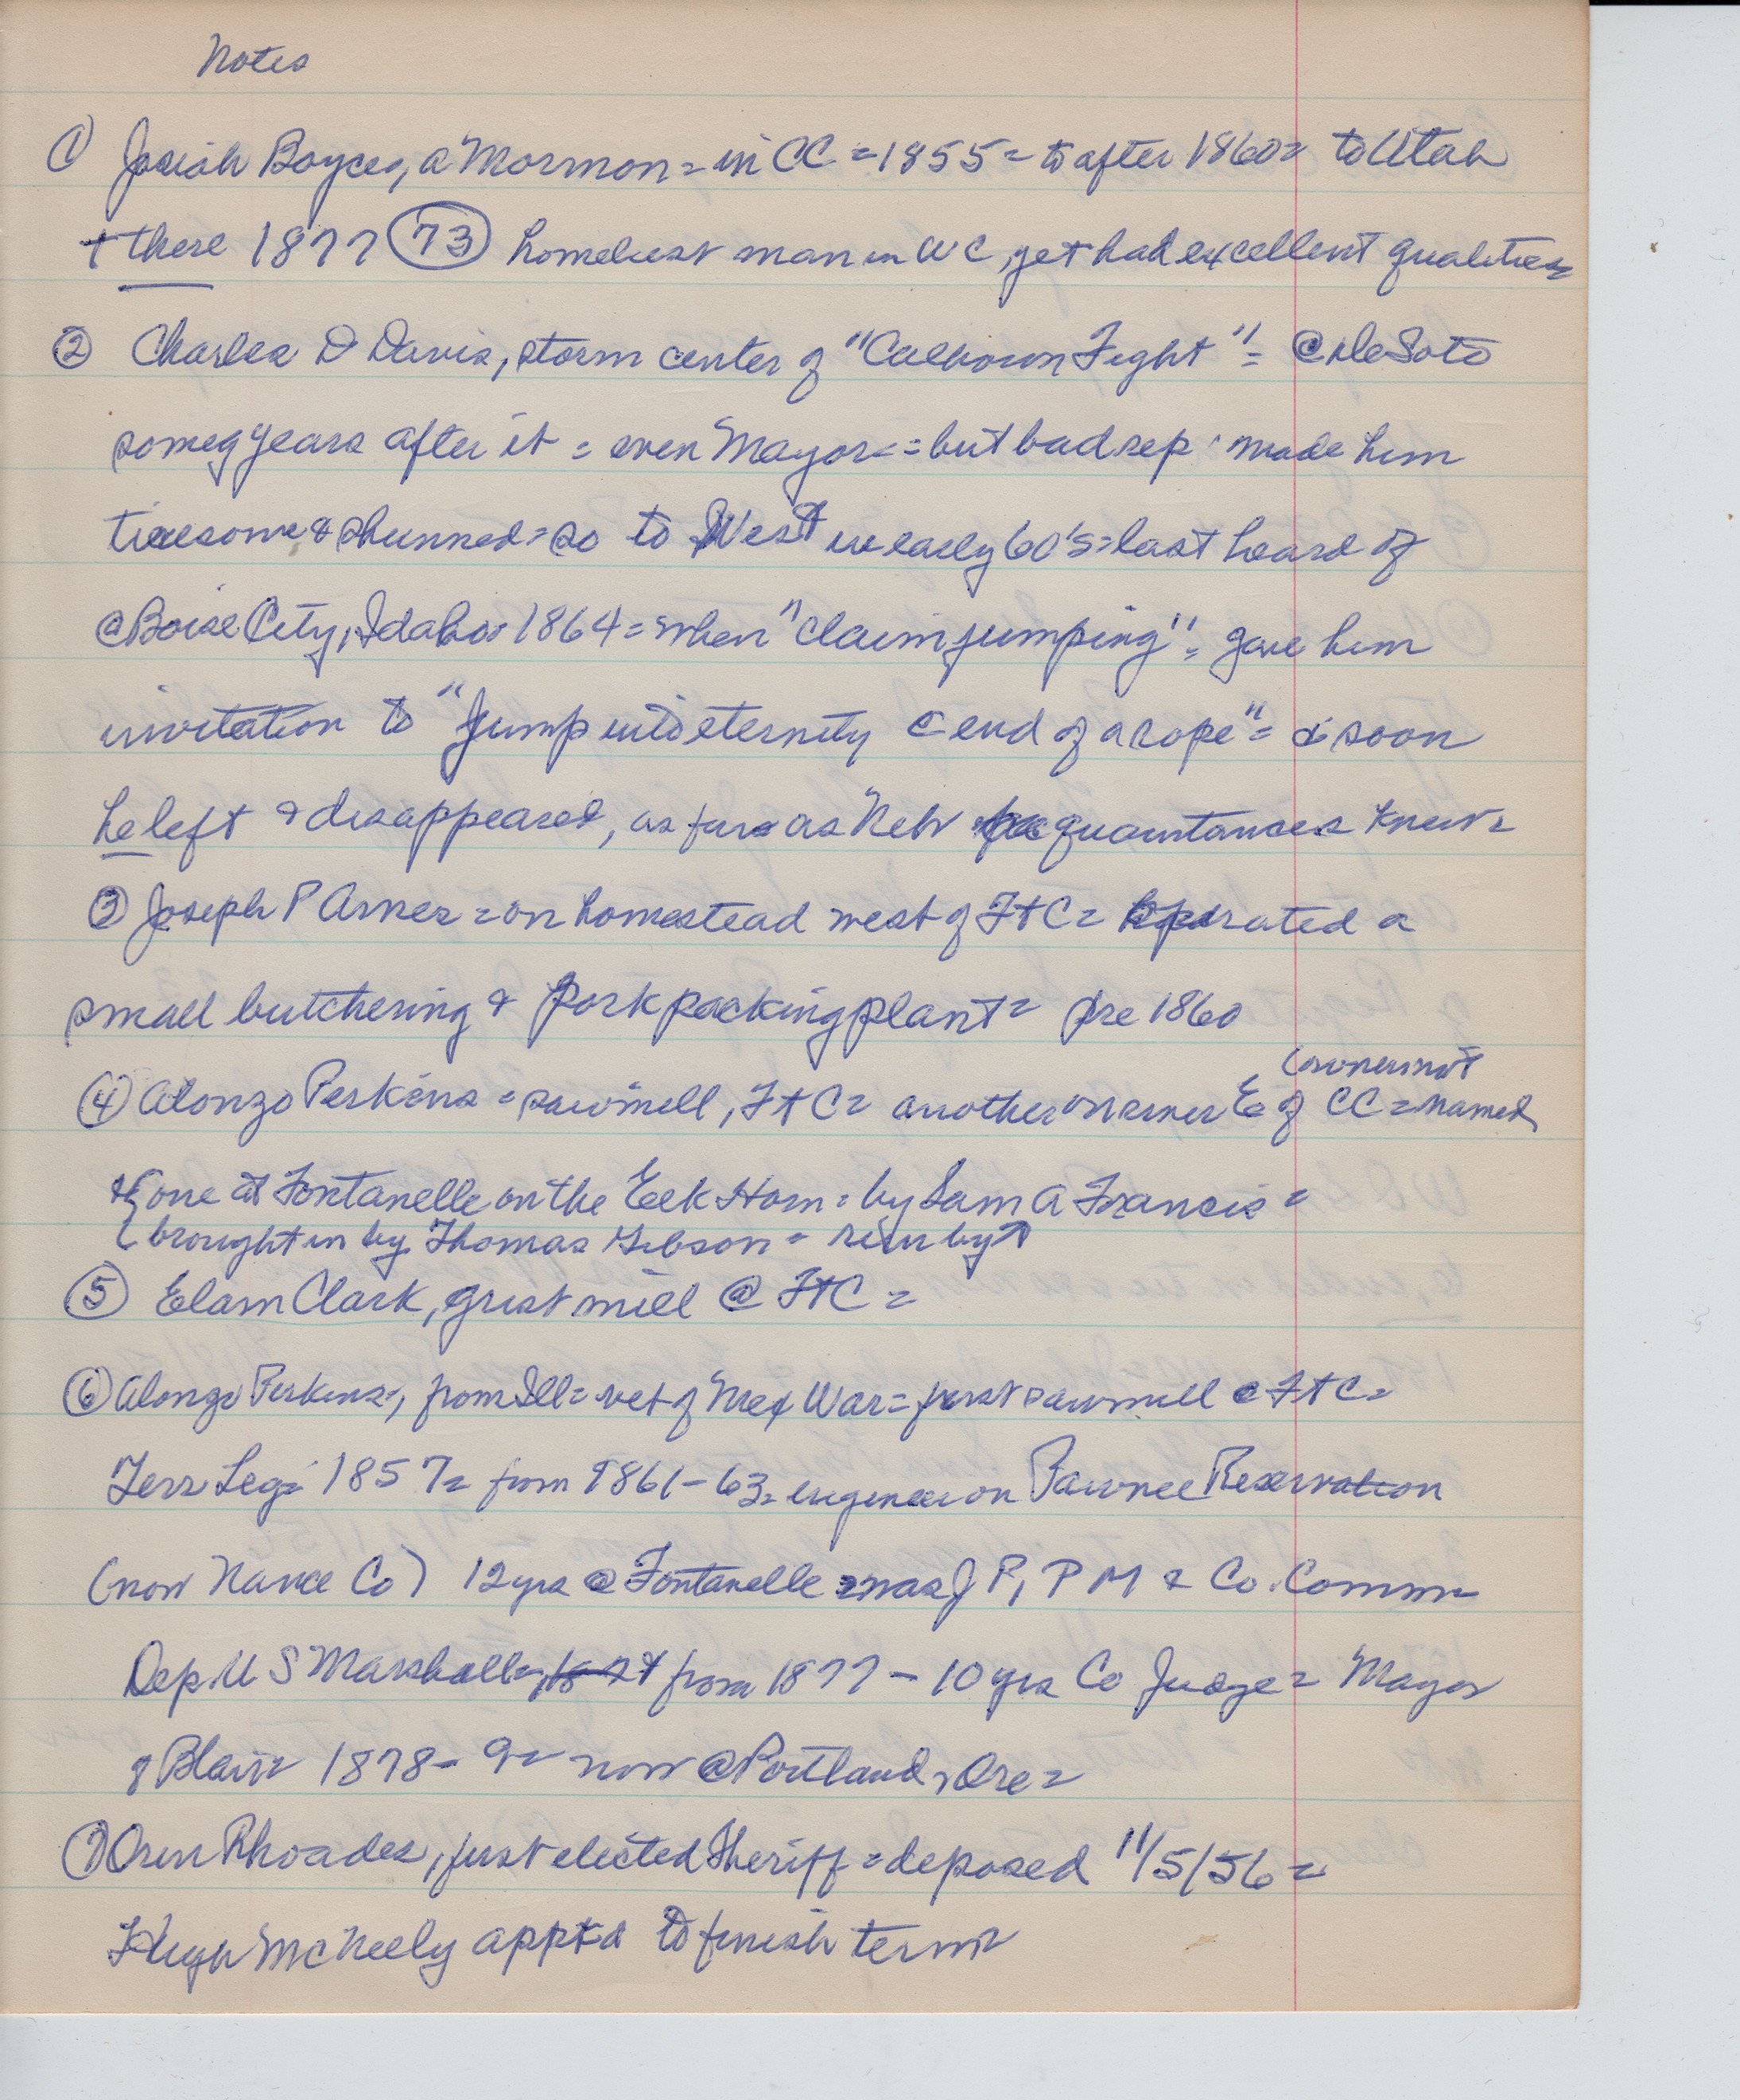 Notes
① Josiah Boyces, a Mormon = in CC = 1855 = to after 1860 = to Utah
+ there 1877 (73) homeliest man in WC, yet had excellent qualities
② Charles D Davis, storm center of "Calhoun Fight" = @ DeSoto
some years after it = even Mayor = but bad rep. made him
tiresome & shunned = so to West in early 60's = last heard of
@ Boise City, Idaho 1864 = when "claim jumping" = gave him
invitation to "jump into eternity @ end of a rope" = & soon
he left & disappeared, as far as Neb acquaintances knew =
③ Joseph P Arnes = on homestead west of FtC = operated a
small butchering & pork packing plant = pre 1860
(owner not
④ Alonzo Perkins = sawmill, FtC = another E of CC = named
& one at Fontanelle on the Eek Horn = by Sam A Francis =
( brought in by Thomas Gibson = run by ↑
⑤ Elam Clark, grist mill @ FtC =
⑥ Alonzo Perkins, from Ill = vet of Mex War = first sawmill @ FtC =
Terr Leg = 1857 = from 1861-63 = engineer on Pawnee Reservation
(now Nance Co) 12 yrs @ Fontanelle = was J P, P M & Co. Commr
Dep. U S Marshall = from 1877 - 10 yrs Co Judge = Mayor
of Blair = 1878-9 = now @ Portland, Ore =
⑦ Oren Rhoades, first elected Sheriff = deposed 11/5/56 =
Hugh McNeely apptd to finish term =